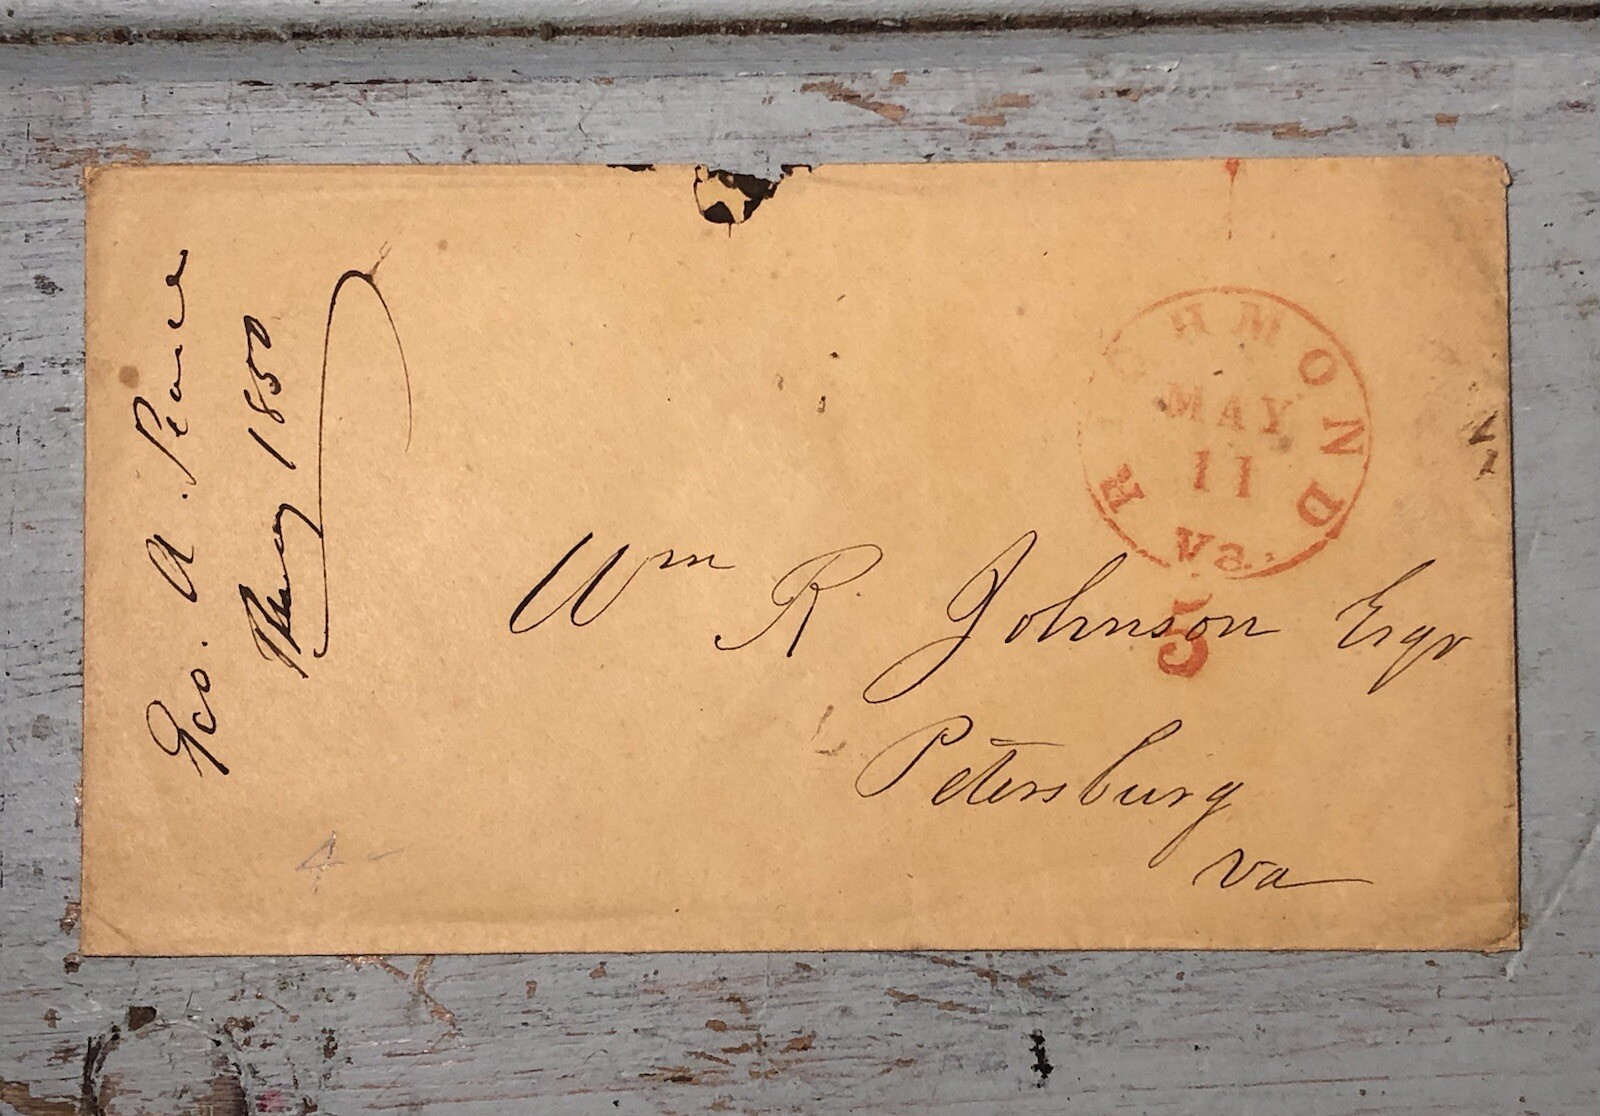 Geo. A. Pearce
May 1850
RICHMOND
MAY
11
Va.
5
Wm R. Johnson Esqr
Petersburg
Va
4 -